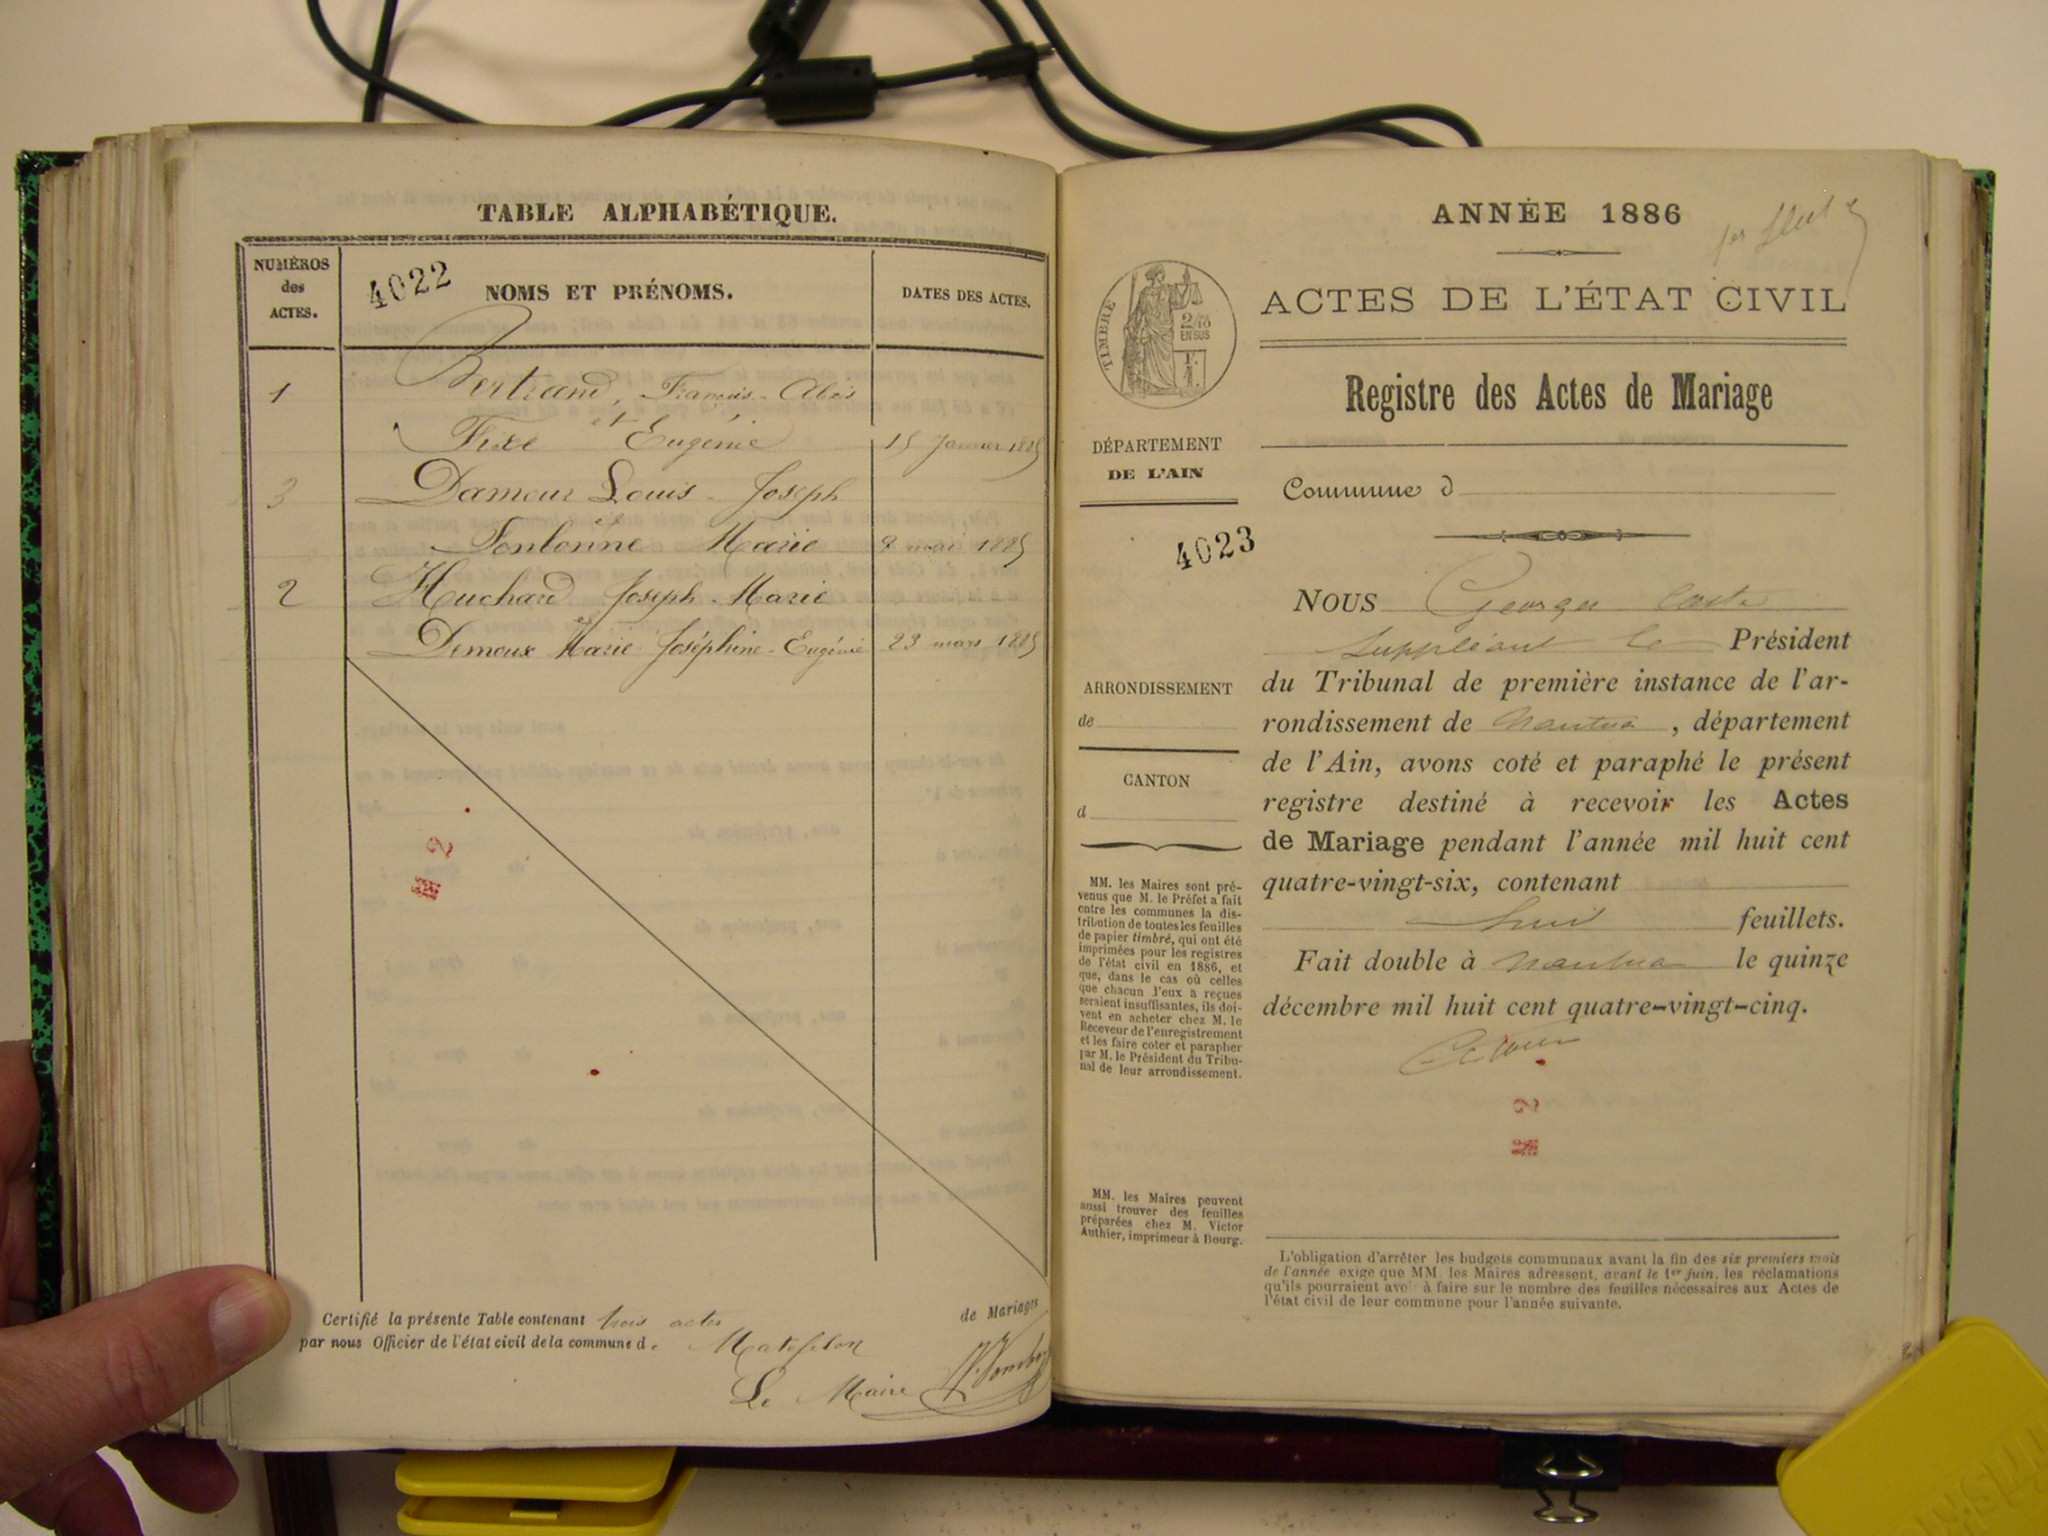 TABLE ALPHABÉTIQUE.
NUMÉROS
des
ACTES.
4022
NOMS ET PRÉNOMS.
DATES DES ACTES.
1 Bertrand, François-Aloïs
et
Fixe Eugénie 15 Janvier 1885
3 Damour Louis-Joseph
et
Fontonne Marie 9 mai 1885
2 Huchard Joseph-Marie
et
Demoux Marie Joséphine-Eugénie 23 mars 1885
N 2
Certifié la présente Table contenant trois actes de Mariages
par nous Officier de l'état civil de la commune d. Matafelon
Le Maire
ANNÉE 1886
1er
ACTES DE L'ÉTAT CIVIL
TIMBRE
2/10
EN SUS
Registre des Actes de Mariage
DÉPARTEMENT
DE L'AIN
Commune d
4023
ARRONDISSEMENT
de
CANTON
d
MM. les Maires sont pré-
venus que M. le Préfet a fait
entre les communes la dis-
tribution de toutes les feuilles
de papier timbré, qui ont été
imprimées pour les registres
de l'état civil en 1886, et
que, dans le cas où celles
que chacun d'eux a reçues
seraient insuffisantes, ils doi-
vent en acheter chez M. le
Receveur de l'enregistrement
et les faire coter et parapher
par M. le Président du Tribu-
nal de leur arrondissement.
MM. les Maires peuvent
aussi trouver des feuilles
préparées chez M. Victor
Authier, imprimeur à Bourg.
NOUS Georges Coste
suppléant le Président
du Tribunal de première instance de l'ar-
rondissement de Nantua, département
de l'Ain, avons coté et paraphé le présent
registre destiné à recevoir les Actes
de Mariage pendant l'année mil huit cent
quatre-vingt-six, contenant
huit feuillets.
Fait double à Nantua le quinze
décembre mil huit cent quatre-vingt-cinq.
N 2
L'obligation d'arrêter les budgets communaux avant la fin des six premiers mois
de l'année exige que MM. les Maires adressent, avant le 1er juin, les réclamations
qu'ils pourraient avoir à faire sur le nombre des feuilles nécessaires aux Actes de
l'état civil de leur commune pour l'année suivante.